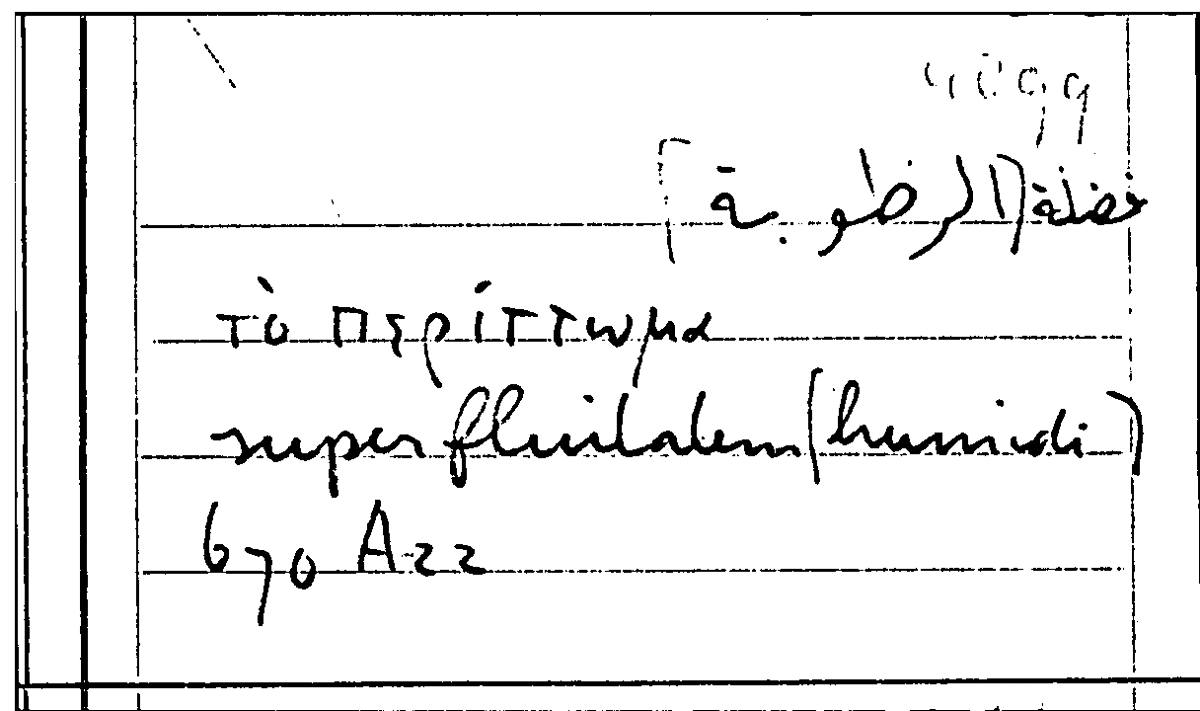 فضلة [الرطوبة]
τὸ περίττωμα
superfluitatem (humidi)
670 A22